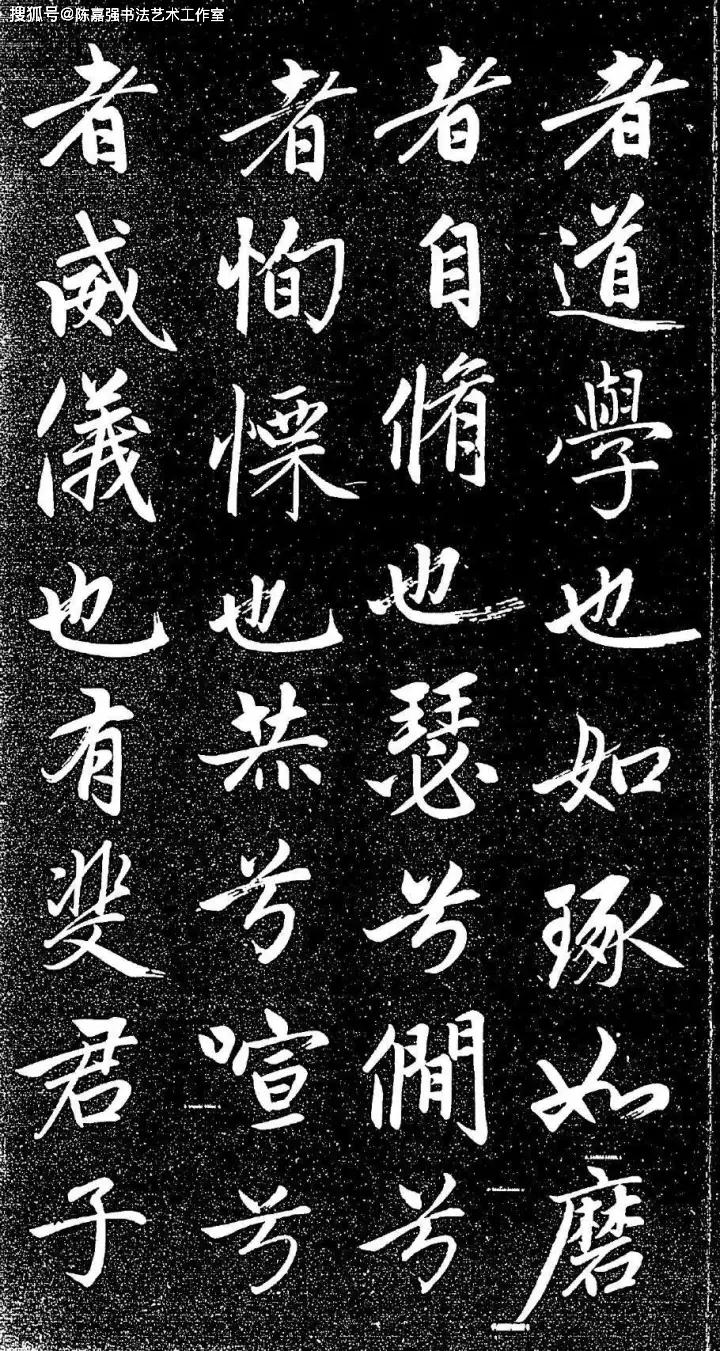 搜狐号@陈嘉强书法艺术工作室
者道學也如琢如磨
者自脩也瑟兮僩兮
者恂慄也赫兮喧兮
者威儀也有斐君子